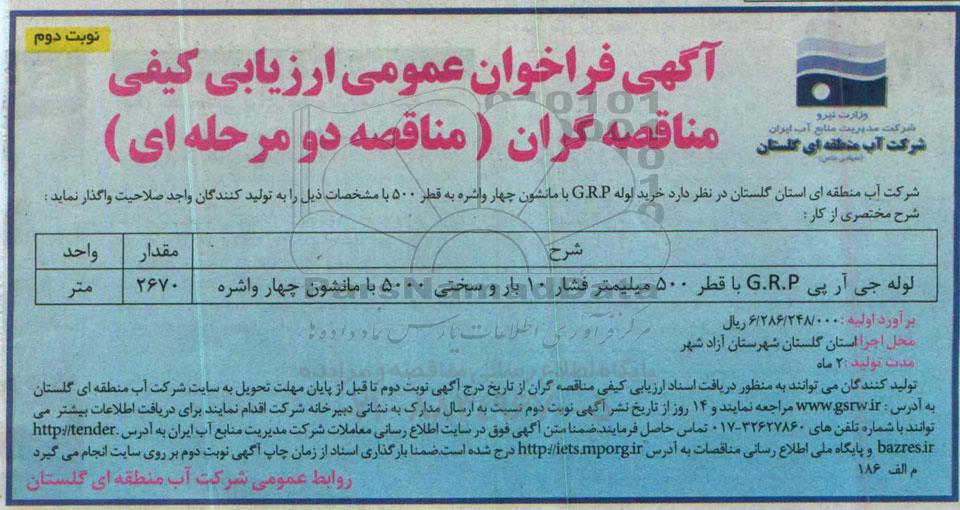 نوبت دوم
آگهی فراخوان عمومی ارزیابی کیفی
مناقصه گران ( مناقصه دو مرحله ای )
وزارت نیرو
شرکت مدیریت منابع آب ایران
شرکت آب منطقه ای گلستان
(سهامی خاص)
شرکت آب منطقه ای استان گلستان در نظر دارد خرید لوله G.R.P با مانشون چهار واشره به قطر ۵۰۰ با مشخصات ذیل را به تولید کنندگان واجد صلاحیت واگذار نماید :
شرح مختصری از کار :
شرح مقدار واحد
لوله جی آر پی G.R.P با قطر ۵۰۰ میلیمتر فشار ۱۰ بار و سختی ۵۰۰۰ با مانشون چهار واشره ۲۶۷۰ متر
ParsNamadData
مرکز فرآوری اطلاعات پارس نماد داده ها
پایگاه اطلاع رسانی مناقصه و مزایده
برآورد اولیه : ۶/۲۸۶/۲۴۸/۰۰۰ ریال
محل اجرا: استان گلستان شهرستان آزاد شهر
مدت تولید : ۲ ماه
تولید کنندگان می توانند به منظور دریافت اسناد ارزیابی کیفی مناقصه گران از تاریخ درج آگهی نوبت دوم تا قبل از پایان مهلت تحویل به سایت شرکت آب منطقه ای گلستان
به آدرس : www.gsrw.ir مراجعه نمایند و ۱۴ روز از تاریخ نشر آگهی نوبت دوم نسبت به ارسال مدارک به نشانی دبیرخانه شرکت اقدام نمایند برای دریافت اطلاعات بیشتر می
توانند با شماره تلفن های ۳۲۶۲۷۸۶۰-۰۱۷ تماس حاصل فرمایند.ضمنا متن آگهی فوق در سایت اطلاع رسانی معاملات شرکت مدیریت منابع آب ایران به آدرس http://tender.
bazres.ir و پایگاه ملی اطلاع رسانی مناقصات به آدرس http://iets.mporg.ir درج شده است.ضمنا بارگذاری اسناد از زمان چاپ آگهی نوبت دوم بر روی سایت انجام می گیرد
م الف ۱۸۶
روابط عمومی شرکت آب منطقه ای گلستان